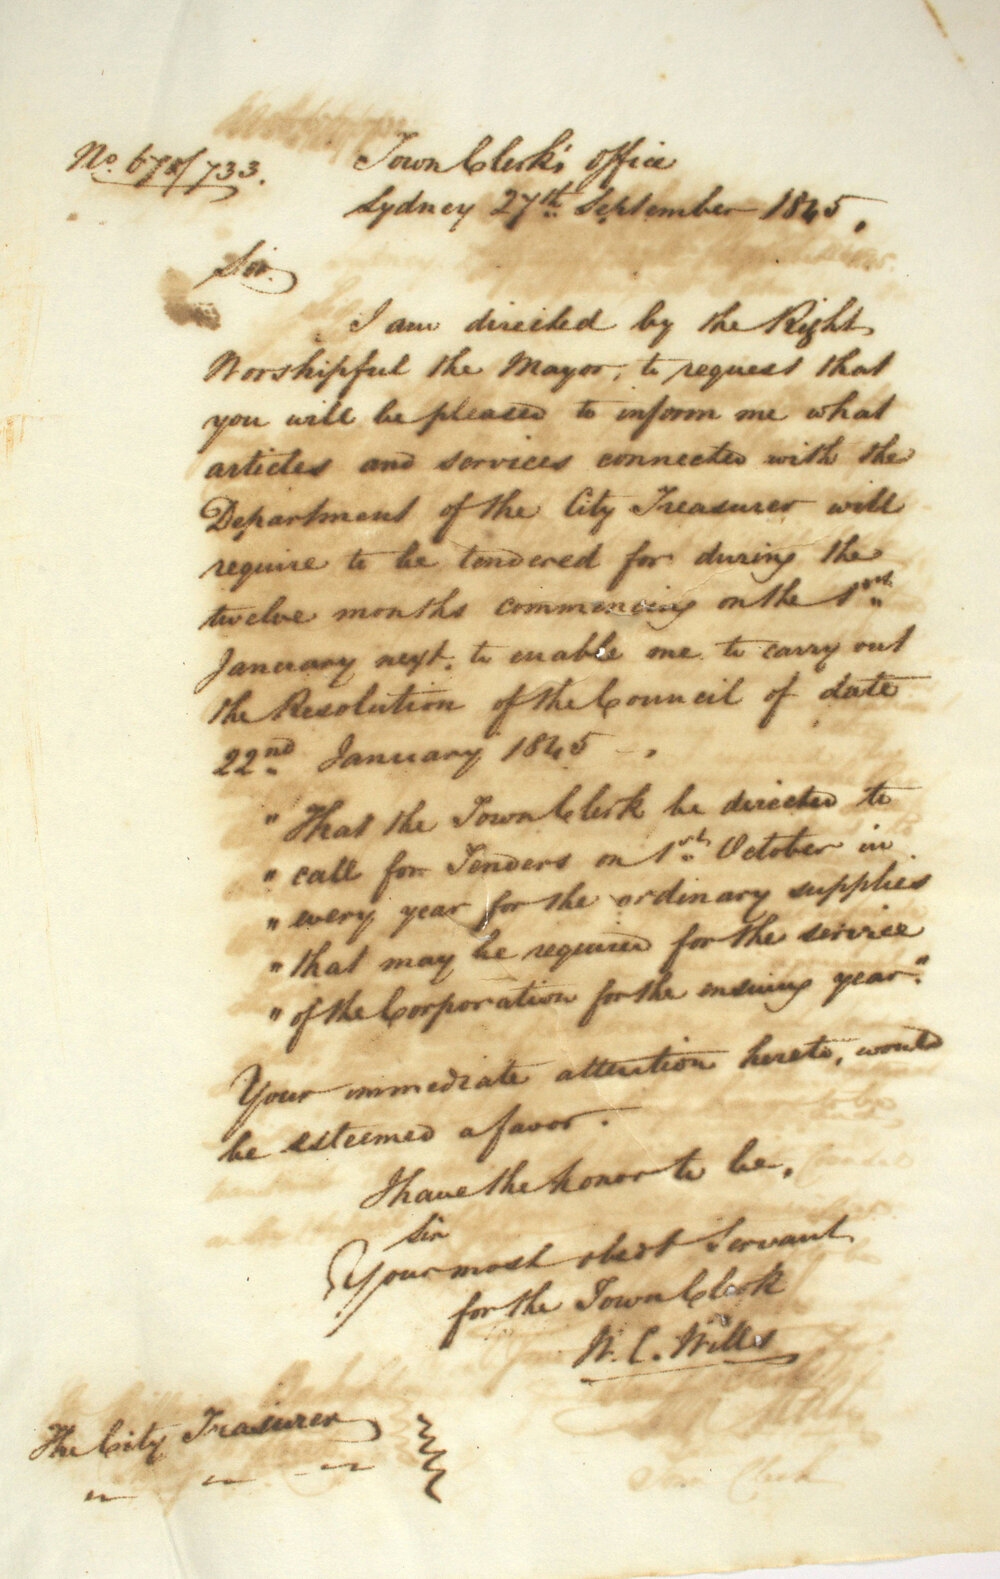 No. 678/733.
Town Clerk's Office
Sydney 27th September 1845.
Sir.
I am directed by the Right
Worshipful the Mayor, to request that
you will be pleased to inform me what
articles and services connected with the
Department of the City Treasurer will
require to be tendered for during the
twelve months commencing on the 1st
January next. to enable me to carry out
the Resolution of the Council of date
22nd January 1845 - .
" That the Town Clerk be directed to
" call for Tenders on 1st October in
" every year for the ordinary supplies
" that may be required for the service
" of the Corporation for the ensuing year."
Your immediate attention hereto, would
be esteemed a favor.
I have the honor to be,
Sir
Your most obedt Servant
for the Town Clerk
W. C. Wills
The City Treasurer
" " "